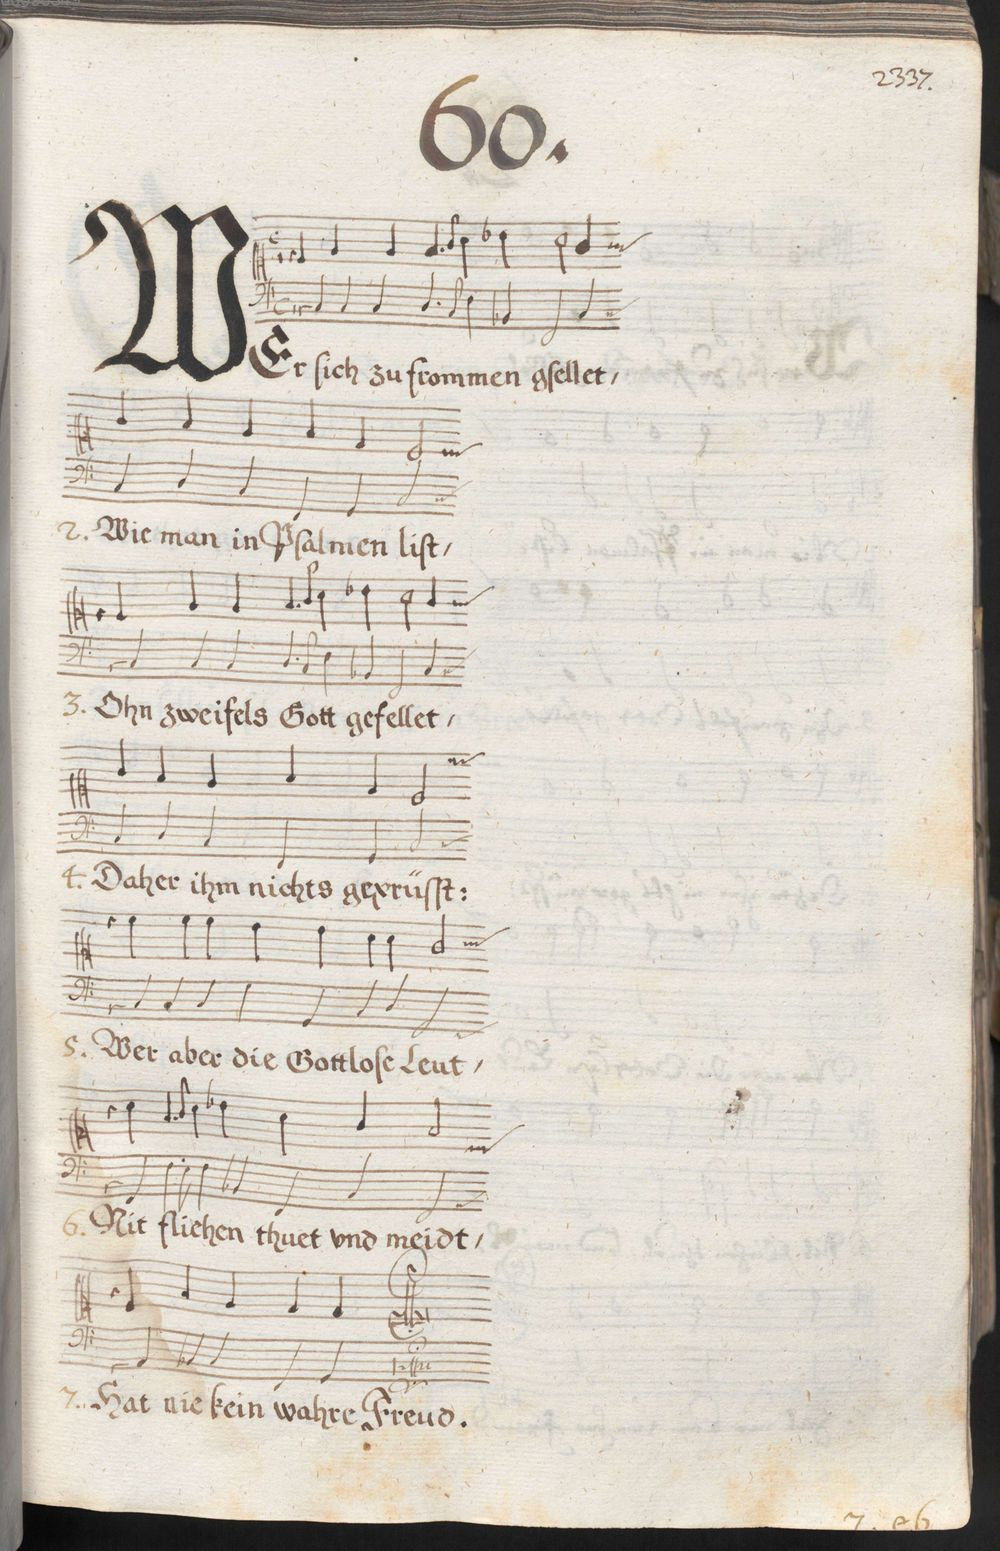 2337.
60.
WEr sich zu frommen gsellet,
2. Wie man in Psalmen list,
3. Ohn zweifels Gott gefellet,
4. Daher ihm nichts geprüsst:
5. Wer aber die Gottlose Leut,
6. Nit fliehen thuet vnd meidt,
7. Hat nie kein wahre Freud.